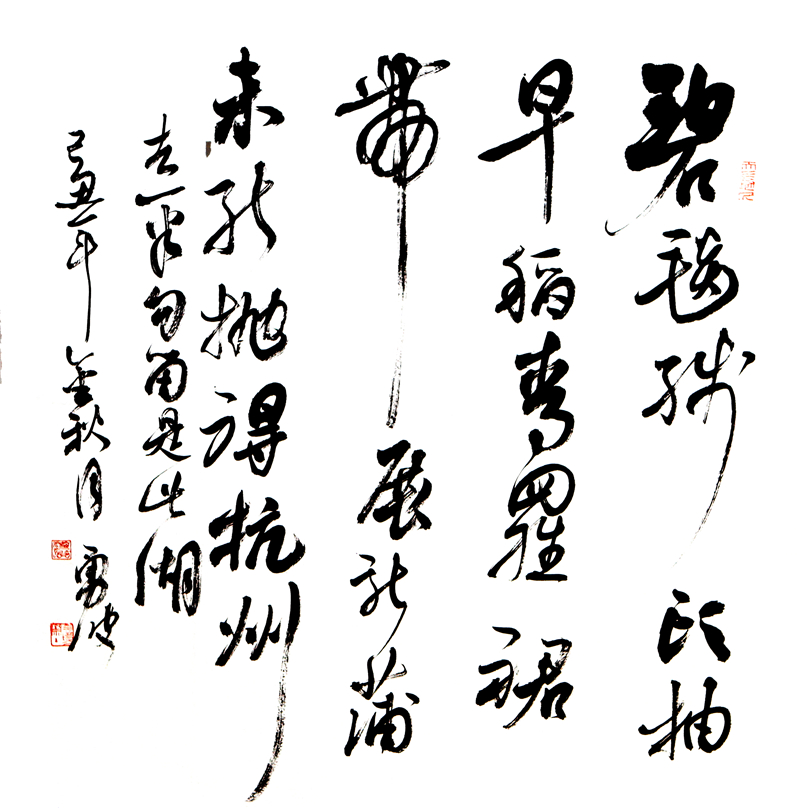 碧毯线头抽
早稻青羅裙
帶展新蒲
未能抛得杭州
去一半勾留是此湖
己丑年金秋月 勇波